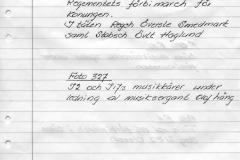 Regementets förbimarch för
Konungen.
I täten Regch Överste Smedmark
samt Stabsch Övlt Haglund
Foto 327
I2 och I17s musikkårer under
ledning av musiksergant Olof hång